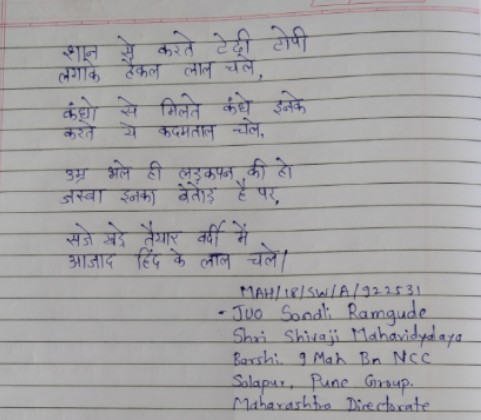 शान से करते टेढ़ी टोपी
लगाके हैकल लाल चले,
कंधो से मिलते कंधे इनके
करते ये कदमताल चले,
उम्र भले ही लड़कपन की हो
जस्बा इनका बेतोड़ है पर,
सजे खड़े तैयार वर्दी में
आजाद हिंद के लाल चले।
MAH/18/SW/A/922531
- JUO Sonali Ramgude
Shri Shivaji Mahavidyalaya
Barshi. 9 Mah Bn NCC
Solapur, Pune Group.
Maharashtra Directorate